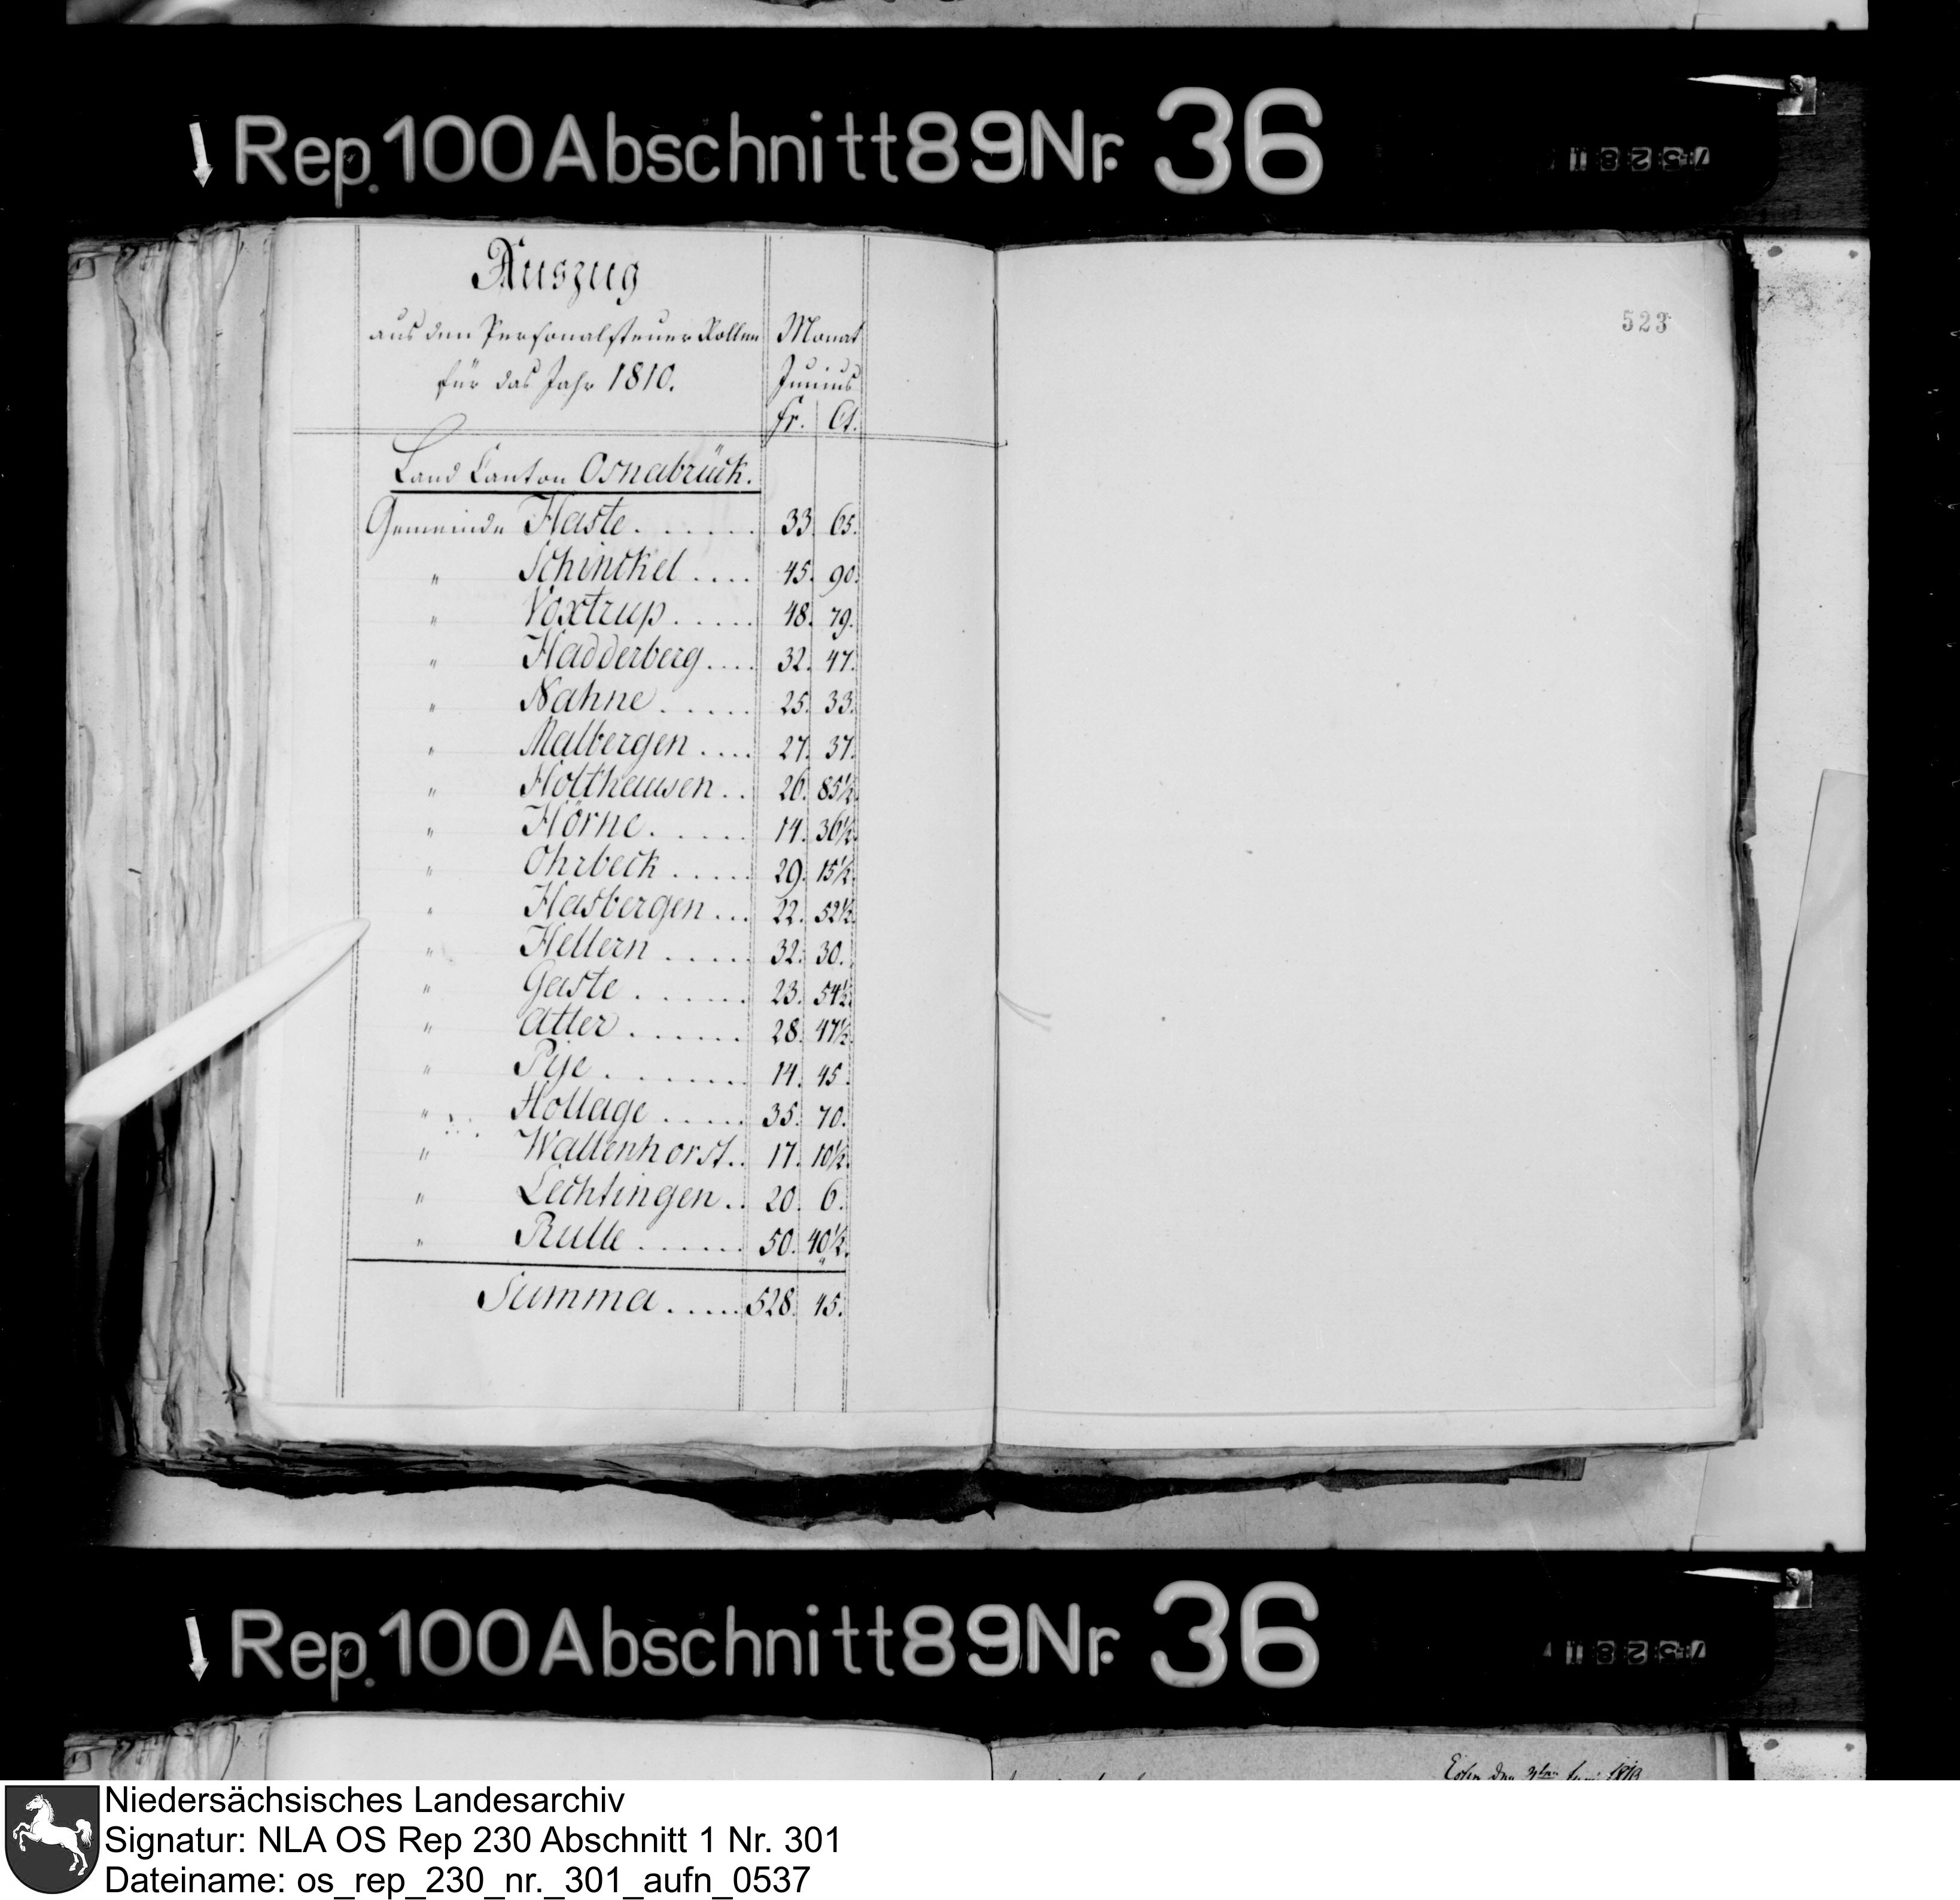 Rep. 100 Abschnitt 89 Nr. 36
Auszug
aus den Personalsteuer Rollen
für das Jahr 1810.
Monat
Junius
fr. Ct.
523
Land Canton Osnabrück.
Gemeinde Haste . . . . . . 33. 65.
" Schinckel . . . . 45. 90.
" Voxtrup . . . . . 48. 79.
" Hadderberg . . . . 32. 47.
" Nahne . . . . . 25. 33.
" Malbergen . . . . 27. 37.
" Holthausen . . 26. 85½.
" Hörne . . . . . 14. 36½.
" Ohrbeck . . . . . 29. 15½.
" Hasbergen . . . 22. 52½.
" Hellern . . . . . 32. 30.
" Gaste . . . . . . 23. 54½.
" Atter . . . . . . 28. 47½.
" Pye . . . . . . . 14. 45.
" Hollage . . . . . 35. 70.
" Wallenhorst . . 17. 10½.
" Lechtingen . . 20. 6.
" Rulle . . . . . . 50. 40½.
Summa . . . . . 528. 45.
Rep. 100 Abschnitt 89 Nr. 36
Niedersächsisches Landesarchiv
Signatur: NLA OS Rep 230 Abschnitt 1 Nr. 301
Dateiname: os_rep_230_nr._301_aufn_0537